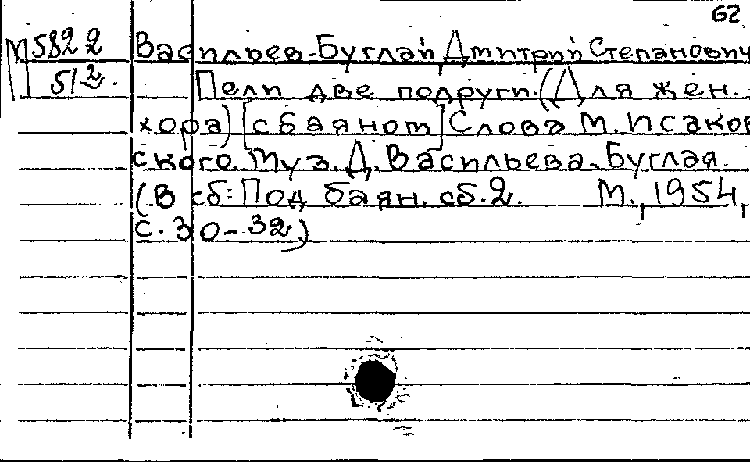 62
М5822 Васильев-Буглай Дмитрий Степанович
51² Пели две подруги. (Для жен.
хора) [с баяном] Слова М. Исаков
ского. Муз. Д. Васильева-Буглая.
(В сб: Под баян. сб. 2. М., 1954,
с. 30-32)